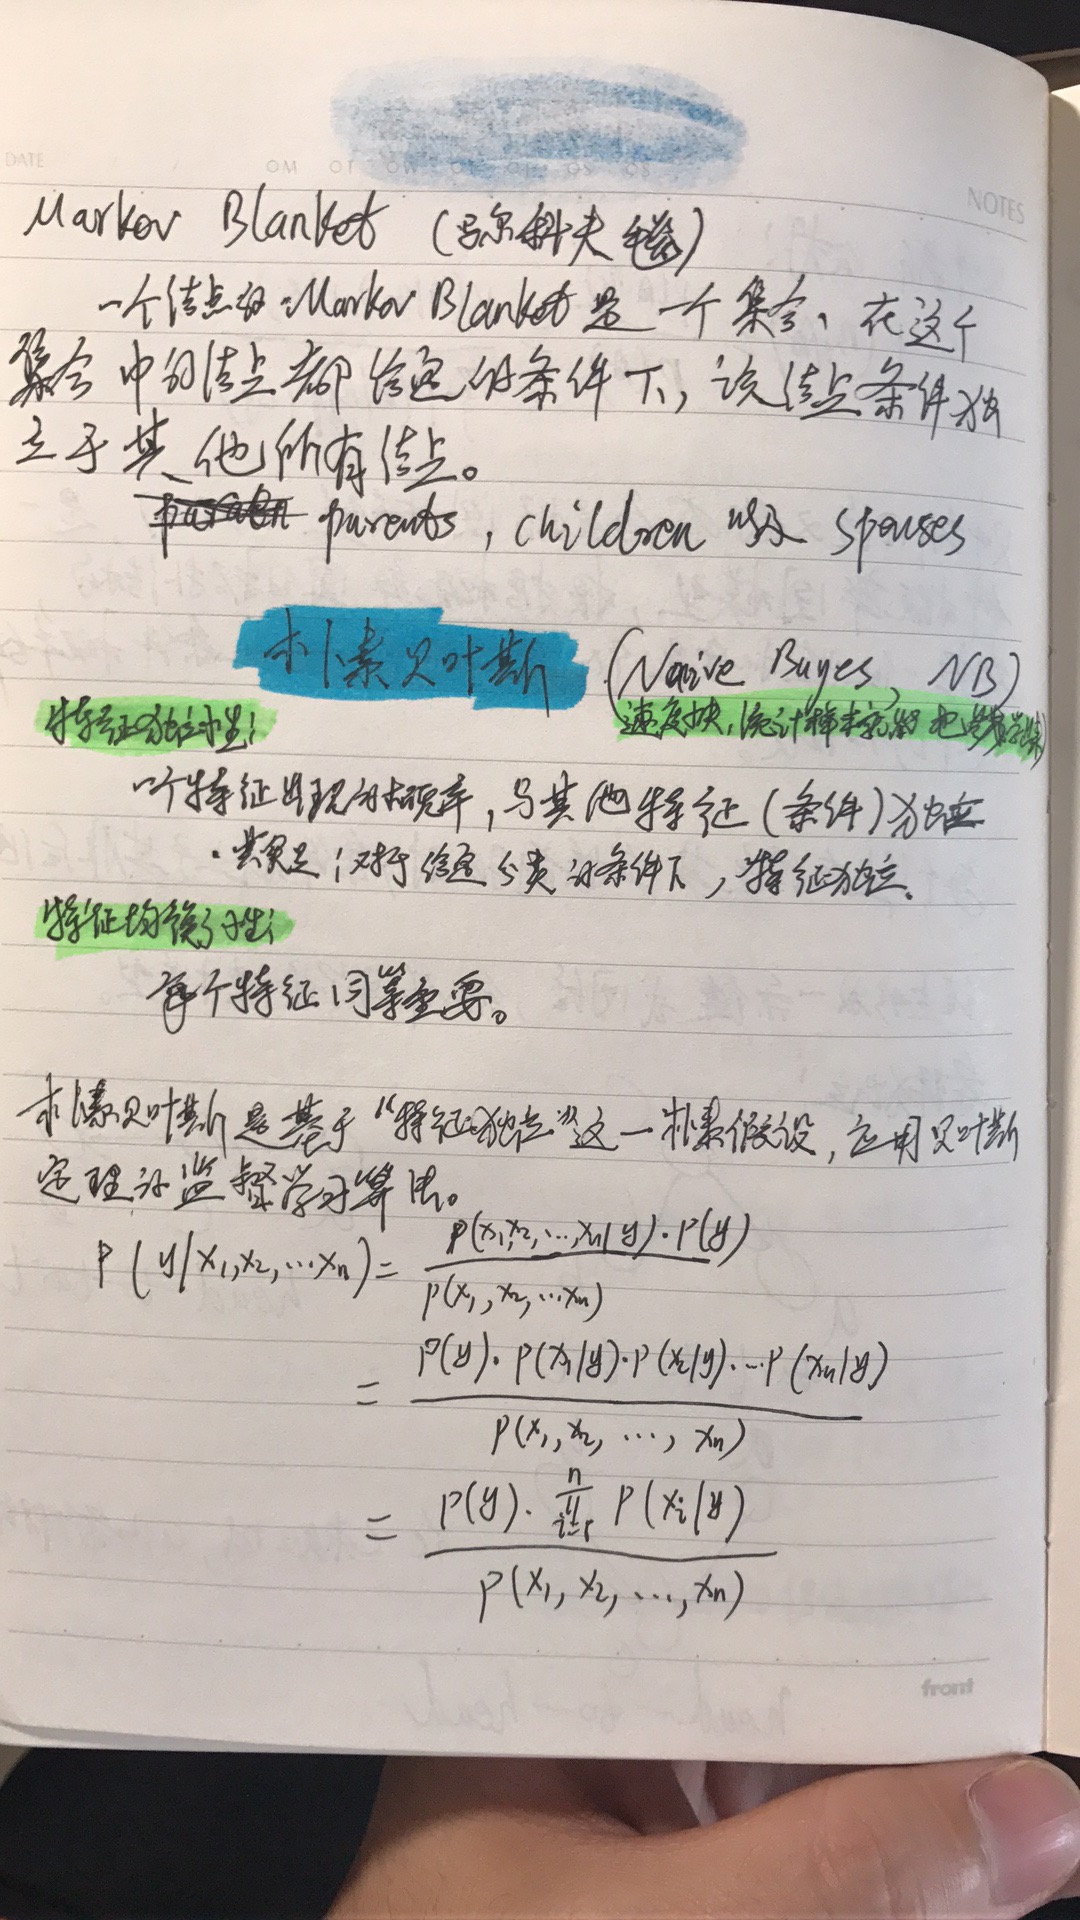 DATE
NOTES
Markov Blanket (马尔科夫毯)
一个结点的Markov Blanket是一个集合、在这个
集合中的结点都给定的条件下，该结点条件独
立于其他所有结点。
parents, children 以及 spouses
朴素贝叶斯 (Naive Bayes, NB)
特征独立性：
速度快,统计样本
一个特征出现的概率，与其他特征(条件)独立
·其实是：对于给定分类的条件下，特征独立.
特征均衡性：
每个特征同等重要。
朴素贝叶斯是基于“特征独立”这一朴素假设，应用贝叶斯
定理的监督学习算法。
P(y|x₁,x₂,...xₙ)= P(x₁,x₂,...,xₙ|y)·P(y)
P(x₁,x₂,...xₙ)
= P(y)·P(x₁|y)·P(x₂|y)·...P(xₙ|y)
P(x₁,x₂,...,xₙ)
= P(y)·∏ⁿᵢ₌₁ P(xᵢ|y)
P(x₁,x₂,...,xₙ)
front